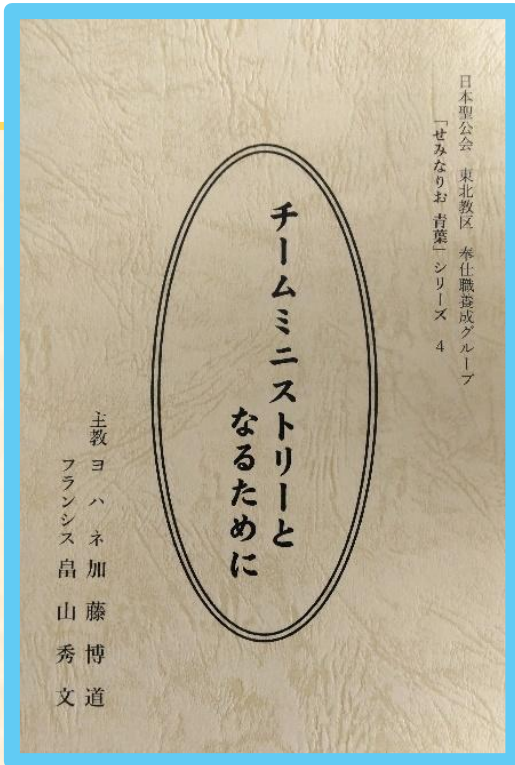 日本聖公会 東北教区 奉仕職養成グループ
「せみなりお 青葉」シリーズ 4
チームミニストリーと
なるために
主教 ヨハネ 加藤博道
フランシス 畠山秀文